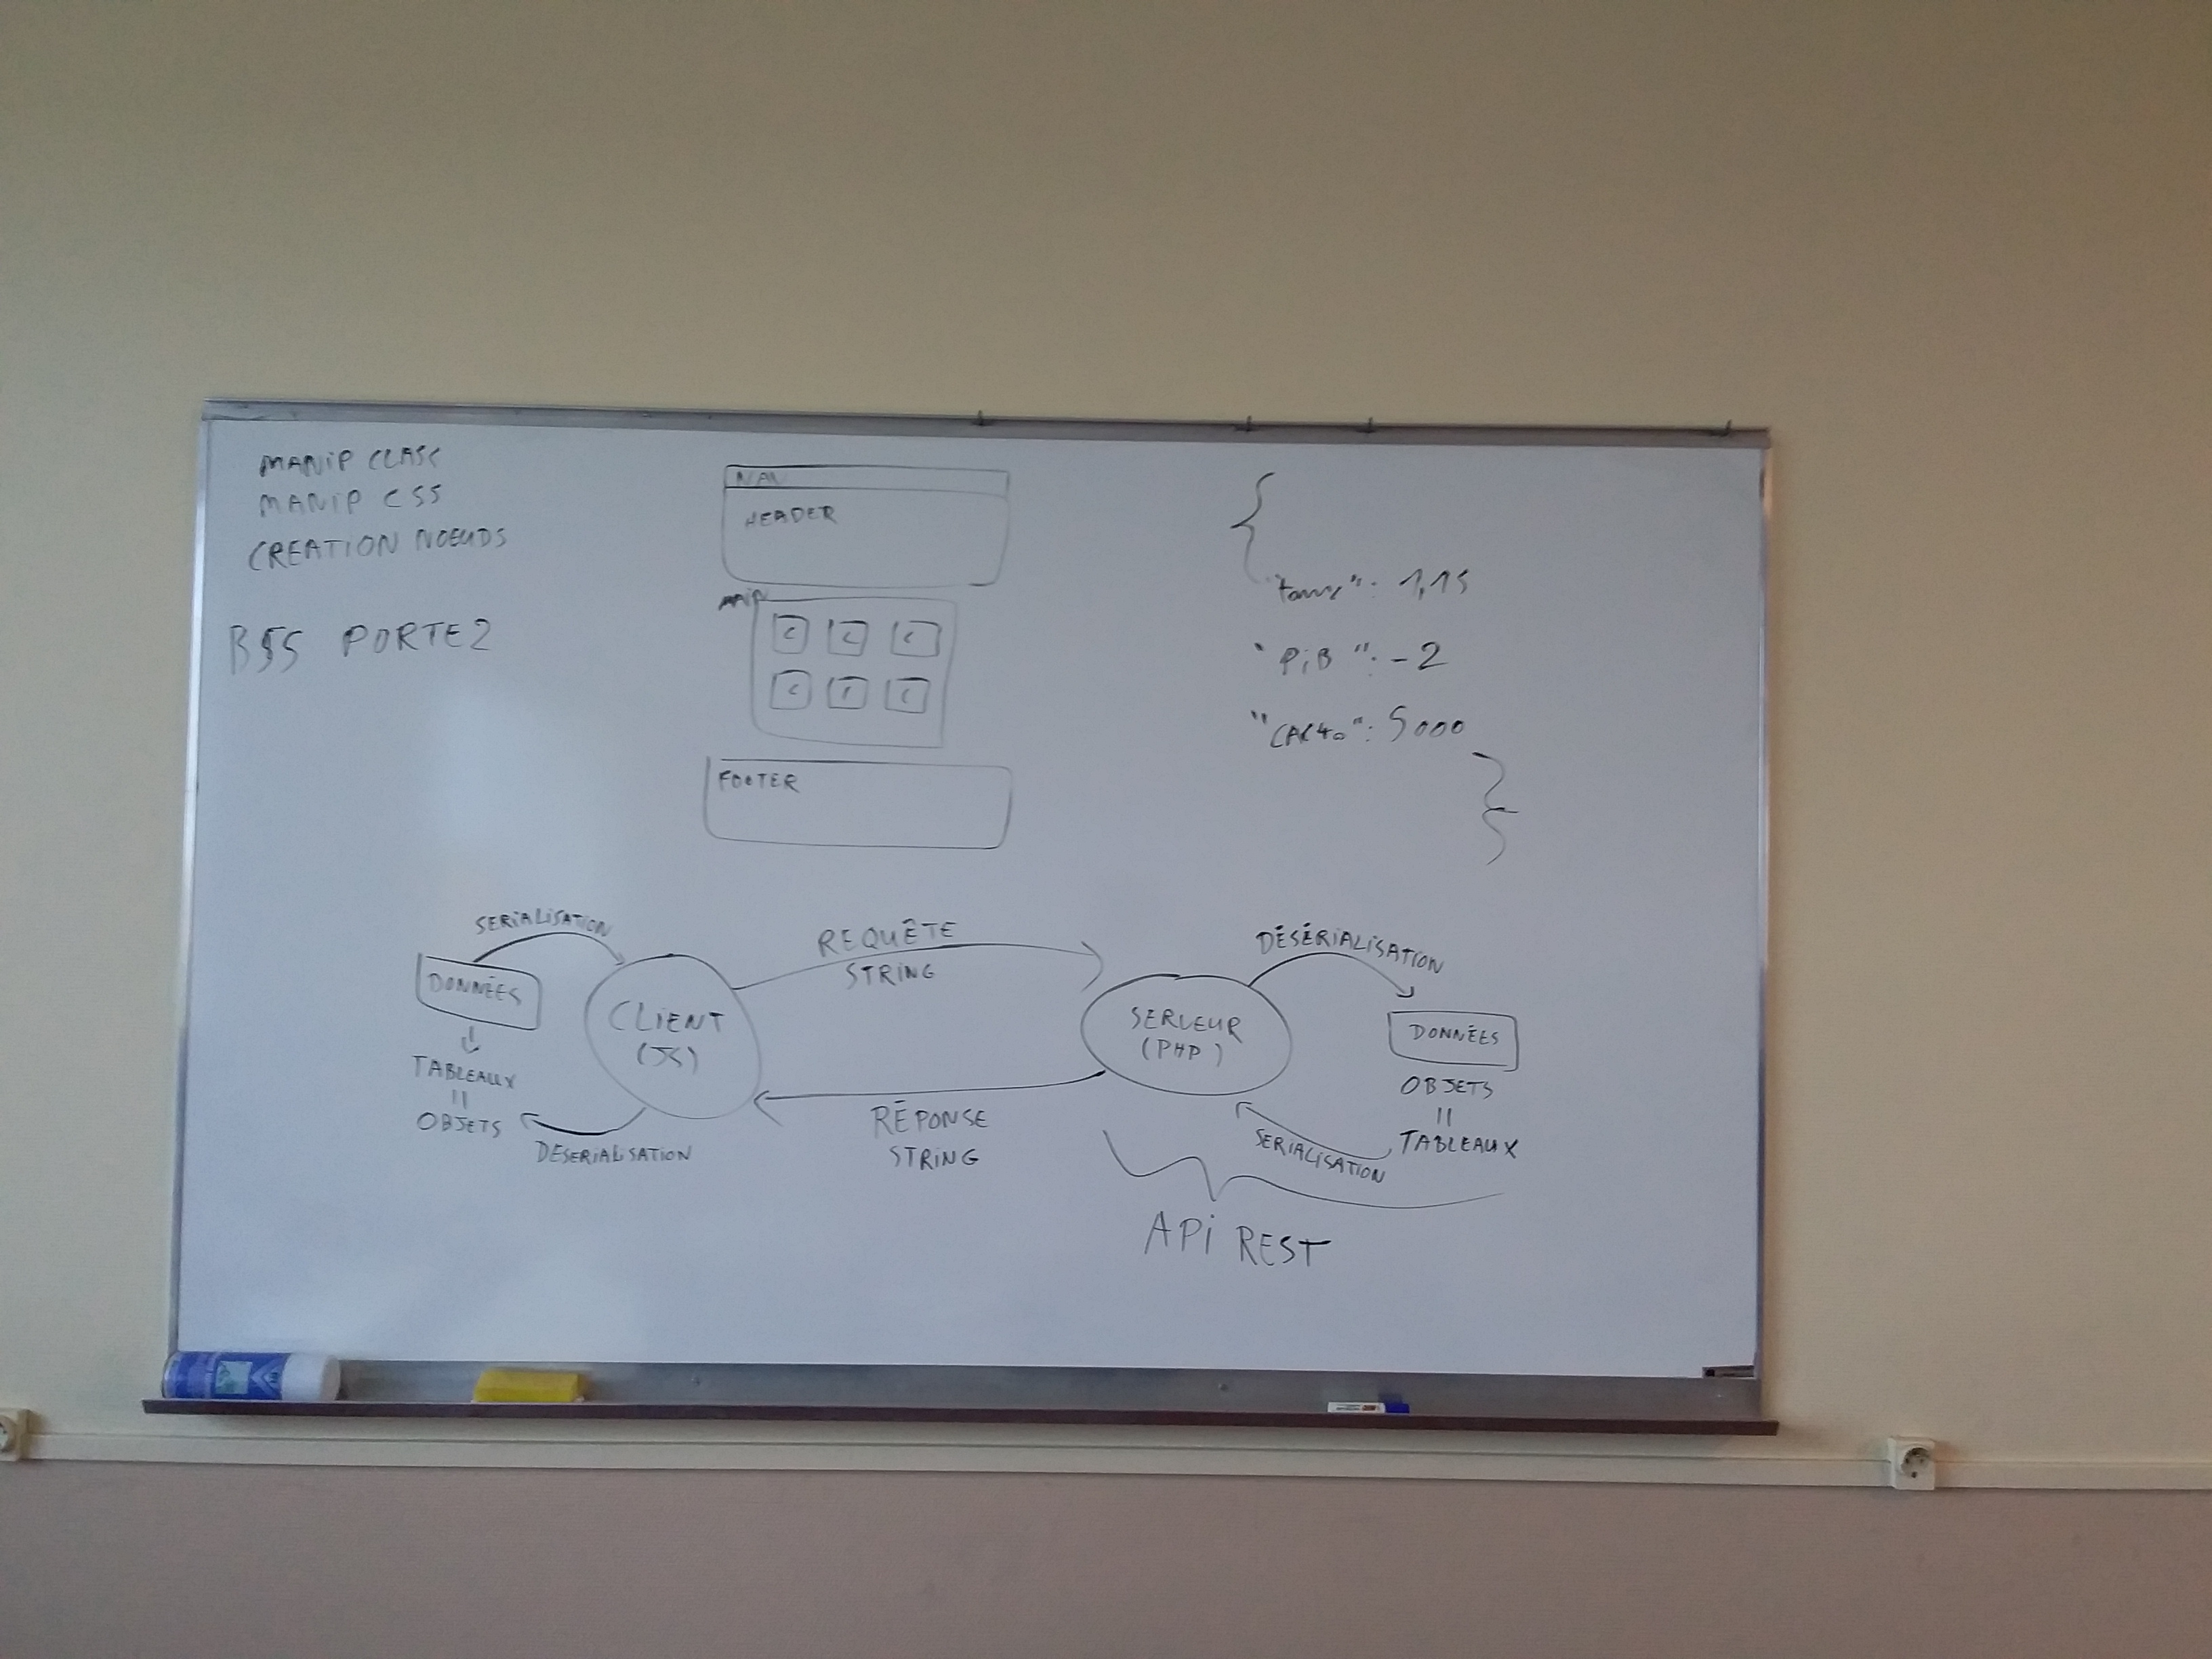 MANIP CLASS
MANIP CSS
CREATION NOEUDS
B55 PORTE2
NAV
HEADER
MAIN
C C C
C C C
FOOTER
{
"taux": 1,15
"PiB": -2
"CAC40": 5000
}
SERIALISATION
DONNÉES
TABLEAUX
=
OBJETS
DESERIALISATION
CLIENT
(JS)
REQUÊTE
STRING
RÉPONSE
STRING
SERVEUR
(PHP)
DÉSÉRIALISATION
DONNÉES
OBJETS
=
TABLEAUX
SERIALISATION
API REST